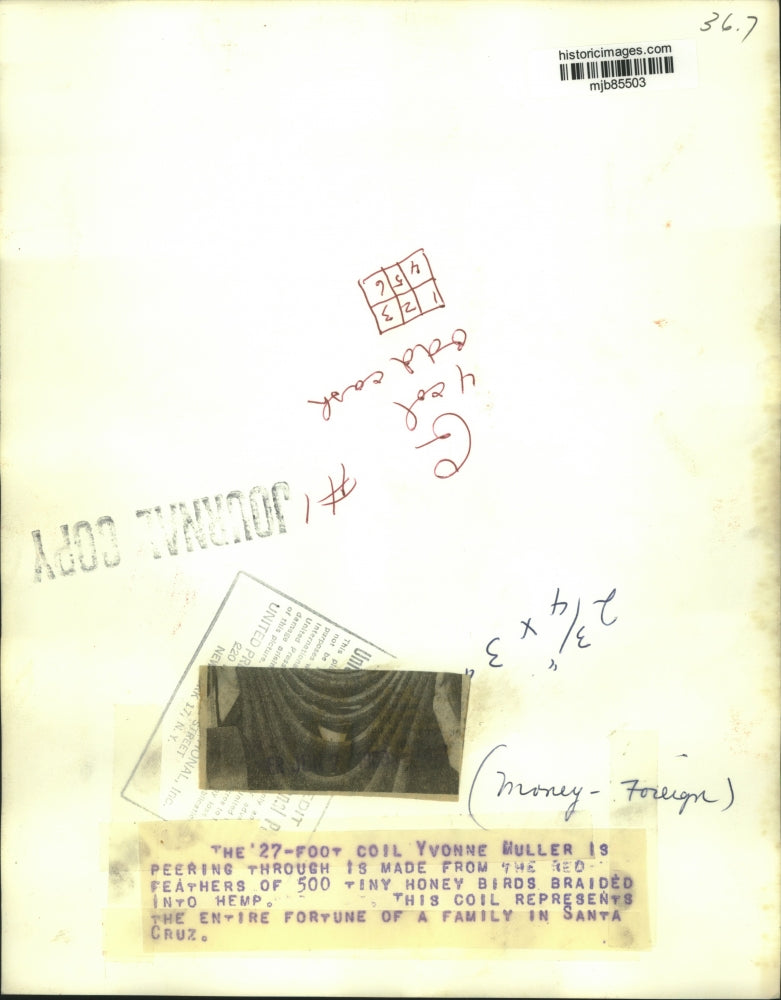 36.7
historicimages.com
mjb85503
4 5 6
1 2 3
odd cash
4 col
#1
JOURNAL COPY
2 3/4" x 3"
This pi
not be
purposes
Internation
United Press
damage
of this picture
UNITED PR
220
NEW
STREET
K 17, N. Y.
ONAL, INC.
(Money - Foreign)
THE 27-FOOT COIL YVONNE MULLER IS
PEERING THROUGH IS MADE FROM THE RED
FEATHERS OF 500 TINY HONEY BIRDS BRAIDED
INTO HEMP. THIS COIL REPRESENTS
THE ENTIRE FORTUNE OF A FAMILY IN SANTA
CRUZ.